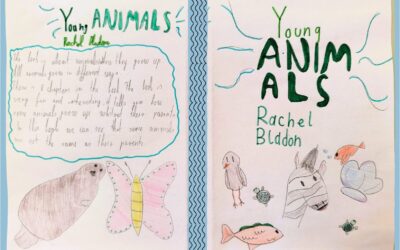 Young ANIMALS
Rachel Bladon
the book is about animals how they grow up
All animals grow in different ways
There is 6 chapters in the book. The book is
very fun and interesting it tells us how
some animals grow up without their parents
In this book we can see that some animals
are not the same as their parents
Young
ANIM
ALS
Rachel
Bladon